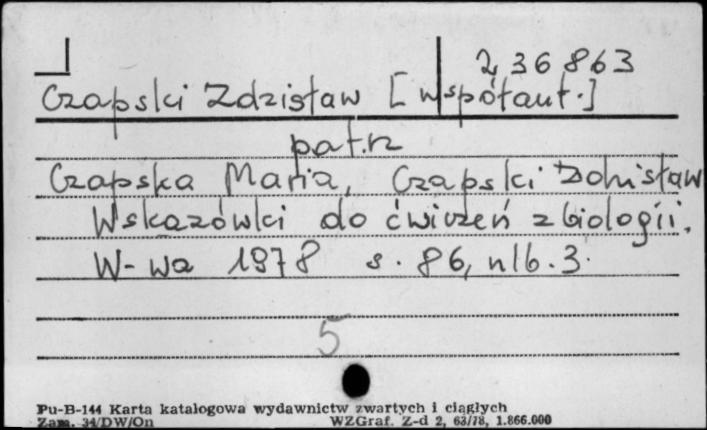 236863
Czapski Zdzisław [współaut.]
patrz
Czapska Maria, Czapski Zdzisław
Wskazówki do ćwiczeń z biologii.
W-wa 1978 s. 86, nlb. 3.
5
Pu-B-144 Karta katalogowa wydawnictw zwartych i ciągłych
Zam. 34/DW/On WZGraf. Z-d 2, 63/78, 1.866.000